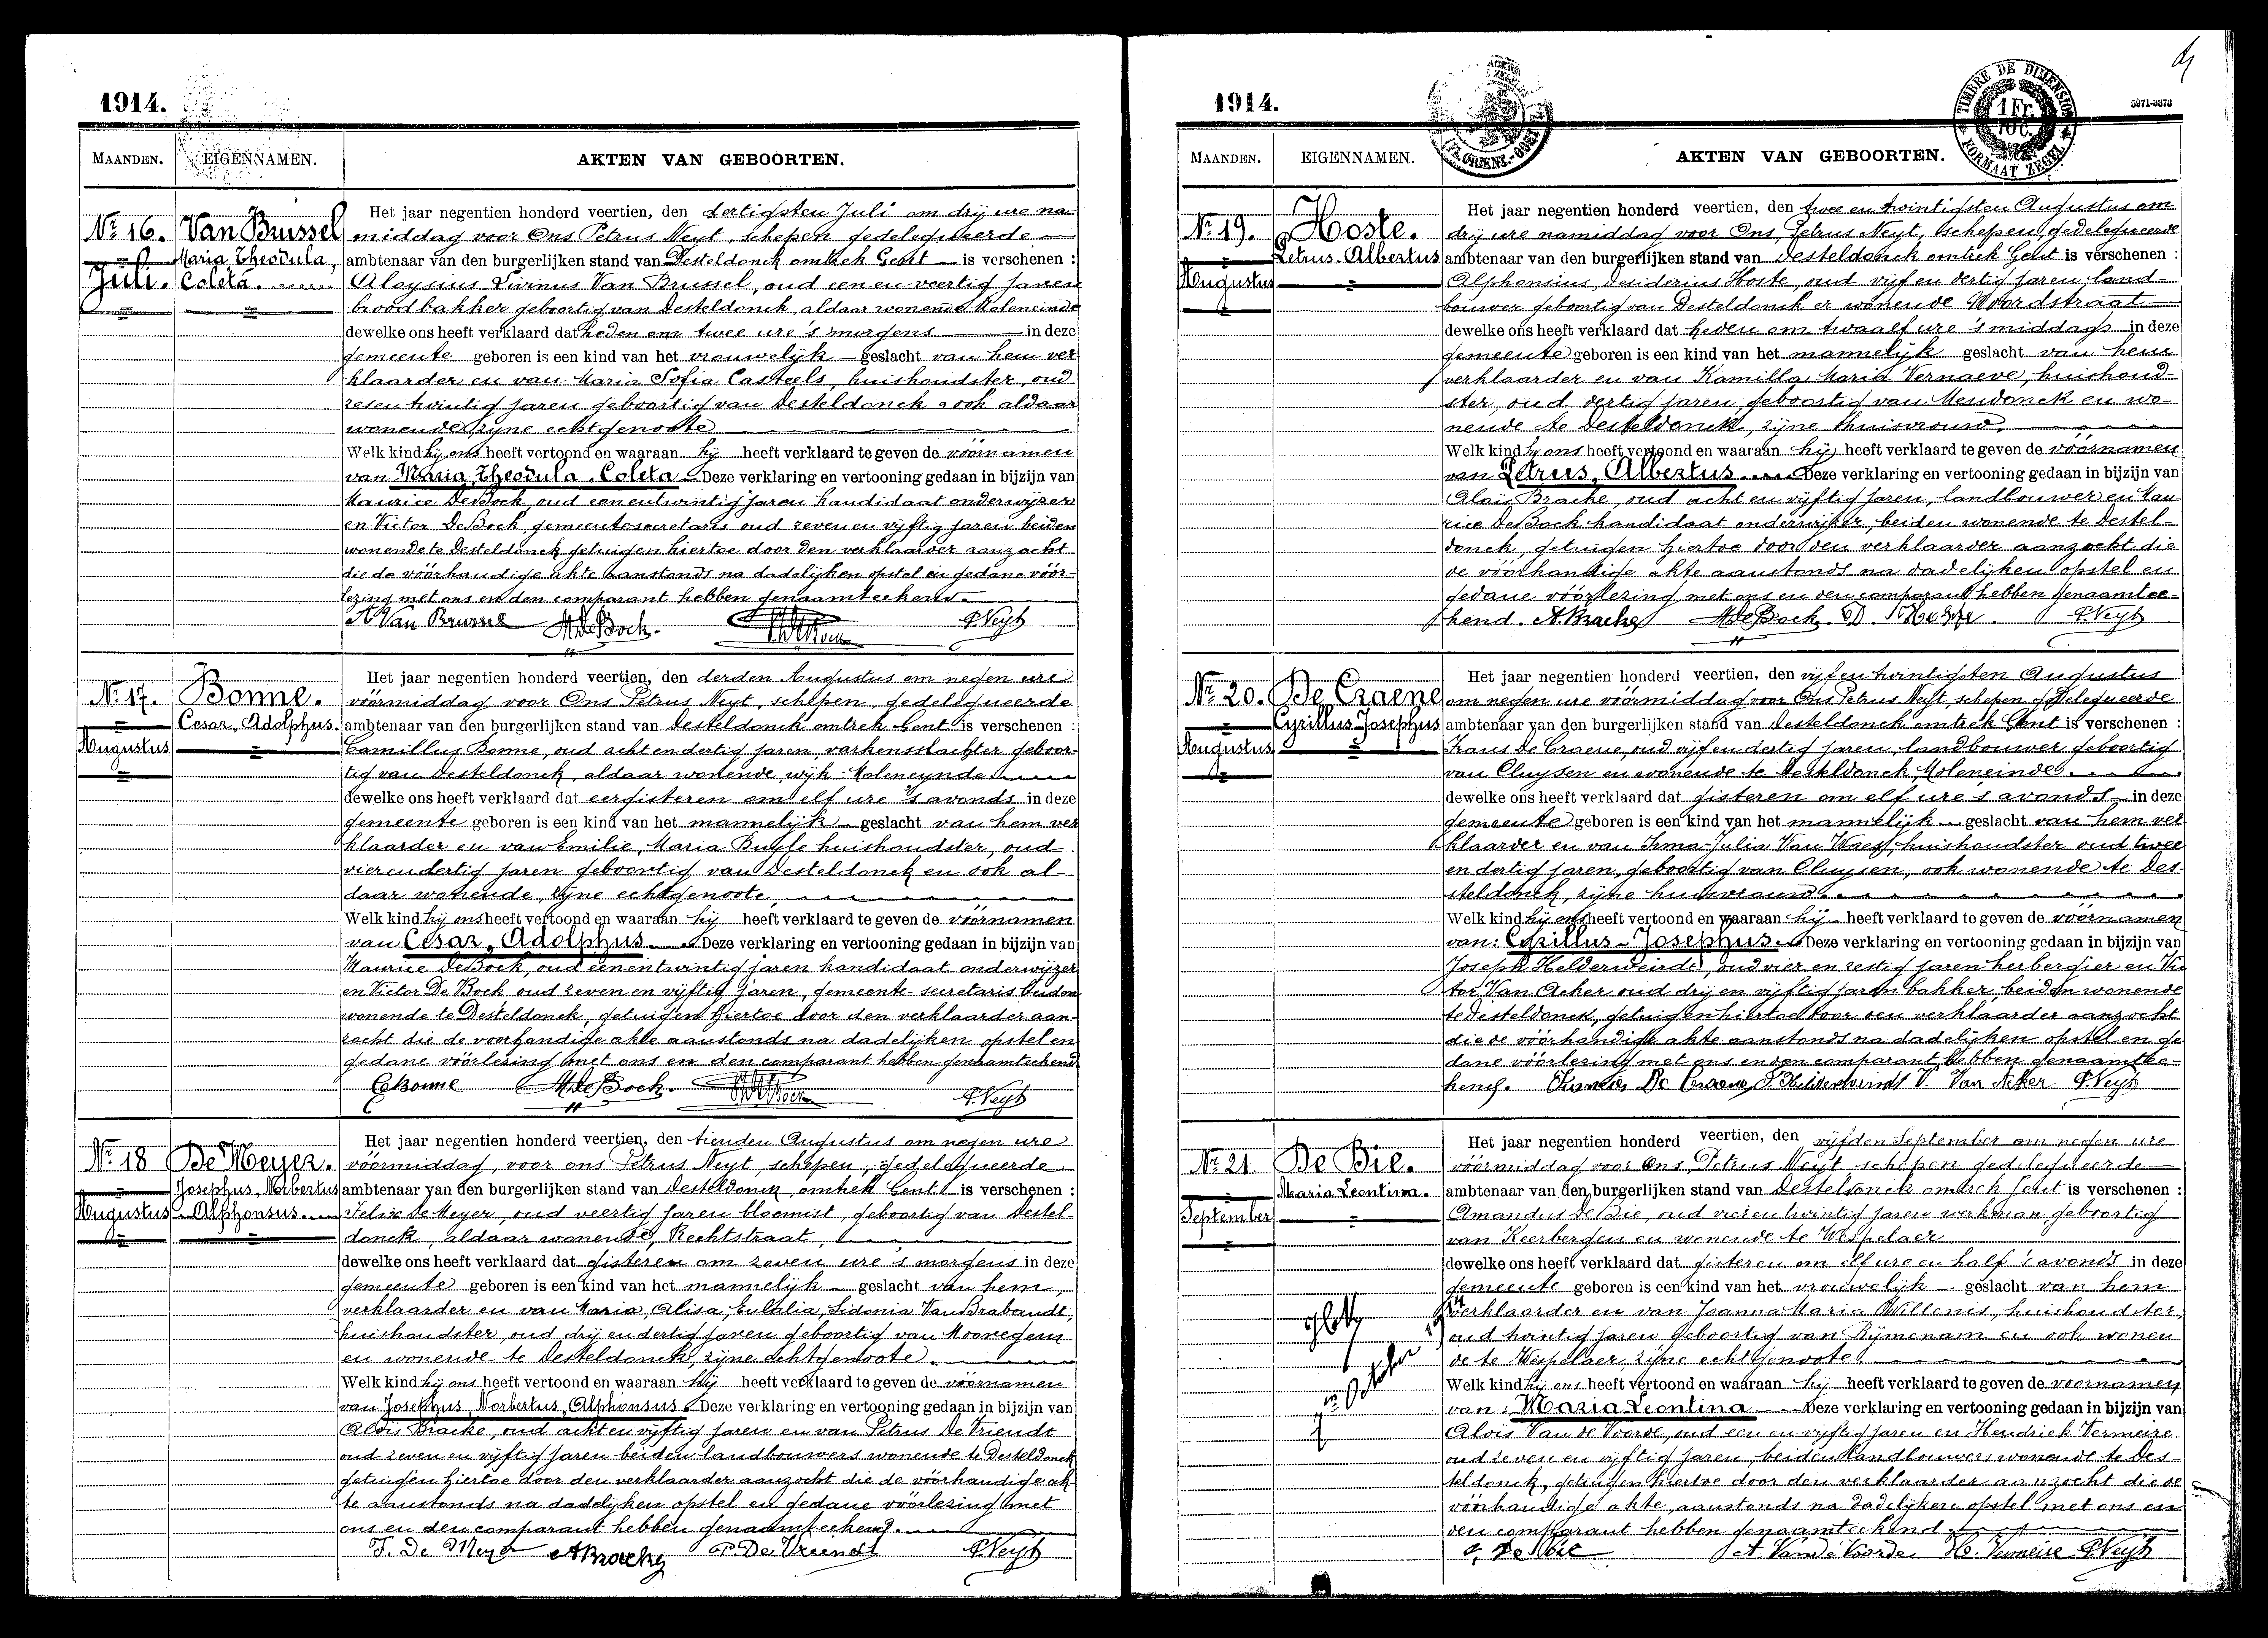 1914.
MAANDEN. EIGENNAMEN. AKTEN VAN GEBOORTEN.
Nr 16. Van Brussel
Maria Theodula,
Juli. Coleta.
Het jaar negentien honderd veertien, den dertigsten Juli om drij ure na-
middag voor Ons Petrus Neyt, schepen gedelegueerde
ambtenaar van den burgerlijken stand van Desteldonck omtrek Gent is verschenen :
Aloysius Livinus Van Brussel, oud een en veertig jaren
broodbakker geboortig van Desteldonck, aldaar wonende Moleneinde
dewelke ons heeft verklaard dat heden om twee ure 's morgens in deze
gemeente geboren is een kind van het vrouwelijk geslacht van hem ver
klaarder en van Maria Sofia Casteels, huishoudster, oud
zesentwintig jaren geboortig van Desteldonck ook aldaar
wonende zijne echtgenoote
Welk kind hij ons heeft vertoond en waaraan hij heeft verklaard te geven de vóórnamen
van Maria, Theodula, Coleta Deze verklaring en vertooning gedaan in bijzijn van
Maurice De Bock, oud eenentwintig jaren kandidaat onderwijzer
en Victor De Bock, gemeentesecretaris oud zeven en vijftig jaren beiden
wonende te Desteldonck getuigen hiertoe door den verklaarder aanzocht
die de vóórhandige akte aanstonds na dadelijken opstel en gedane vóór-
lezing met ons en den comparant hebben genaamteekend.
A Van Brussel M. De Bock. P. Neyt
Nr 17. Bonne.
Cesar, Adolphus.
Augustus
Het jaar negentien honderd veertien, den derden Augustus om negen ure
vóórmiddag voor Ons Petrus Neyt, schepen, gedelegueerde
ambtenaar van den burgerlijken stand van Desteldonck omtrek Gent is verschenen :
Camillus Bonne, oud acht en dertig jaren, varkensslachter geboor-
tig van Desteldonck, aldaar wonende, wijk Moleneynde
dewelke ons heeft verklaard dat eergisteren om elf ure 's avonds in deze
gemeente geboren is een kind van het mannelijk geslacht van hem ver
klaarder en van Emilie, Maria Buysse huishoudster, oud
vierendertig jaren geboortig van Desteldonck en ook al-
daar wonende, zijne echtgenoote
Welk kind hij ons heeft vertoond en waaraan hij heeft verklaard te geven de vóórnamen
van Cesar, Adolphus Deze verklaring en vertooning gedaan in bijzijn van
Maurice De Bock, oud eenentwintig jaren kandidaat onderwijzer
en Victor De Bock oud zeven en vijftig jaren, gemeente-secretaris beiden
wonende te Desteldonck, getuigen hiertoe door den verklaarder aan-
zocht die de voorhandige akte aanstonds na dadelijken opstel en
gedane vóórlezing met ons en den comparant hebben genaamteekend
C Bonne M. De Bock. P. Neyt
Nr 18 De Meyer.
Josephus, Norbertus
Augustus Alphonsus.
Het jaar negentien honderd veertien, den tienden Augustus om negen ure
vóórmiddag, voor ons Petrus Neyt, schepen, gedelegueerde
ambtenaar van den burgerlijken stand van Desteldonck, omtrek Gent is verschenen :
Felix De Meyer, oud veertig jaren bloemist, geboortig van Destel-
donck, aldaar wonende, Rechtstraat,
dewelke ons heeft verklaard dat gisteren om zeven ure 's morgens in deze
gemeente geboren is een kind van het mannelijk geslacht van hem,
verklaarder en van Maria, Alisa, Eulalia, Sidonia Van Brabandt,
huishoudster, oud drij endertig jaren geboortig van Mooregem
en wonende te Desteldonck, zijne echtgenoote.
Welk kind hij ons heeft vertoond en waaraan hij heeft verklaard te geven de vóórnamen
van Josephus, Norbertus, Alphonsus Deze verklaring en vertooning gedaan in bijzijn van
Aloïs Bracke, oud achtenvijftig jaren en van Petrus De Vriendt
oud zeven en vijftig jaren beiden landbouwers wonende te Desteldonck
getuigen hiertoe door den verklaarder aanzocht die de vóórhandige ak-
te aanstonds na dadelijken opstel en gedane vóórlezing met
ons en den comparant hebben genaamteekend.
F. De Meyer A Bracke P. De Vriendt P. Neyt
1914.
TIMBRE DE DIMENSION
1 Fr.
10 C.
FORMAAT ZEGEL
5071-3373
MAANDEN. EIGENNAMEN. AKTEN VAN GEBOORTEN.
Nr 19. Hoste.
Petrus-Albertus
Augustus
Het jaar negentien honderd veertien, den twee en twintigsten Augustus om
drij ure namiddag voor Ons, Petrus Neyt, schepen, gedelegueerde
ambtenaar van den burgerlijken stand van Desteldonck omtrek Gent is verschenen :
Alphonsius, Desiderius Hoste, oud vijf en dertig jaren, land-
bouwer geboortig van Desteldonck er wonende Noordstraat
dewelke ons heeft verklaard dat heden om twaalf ure 's middags in deze
gemeente geboren is een kind van het mannelijk geslacht van hem
verklaarder en van Kamilla Maria Vernaeve, huishoud-
ster, oud dertig jaren, geboortig van Mendonck en wo-
nende te Desteldonck, zijne huisvrouw.
Welk kind hij ons heeft vertoond en waaraan hij heeft verklaard te geven de vóórnamen
van Petrus, Albertus Deze verklaring en vertooning gedaan in bijzijn van
Aloïs Bracke, oud acht en vijftig jaren, landbouwer en Mau
rice De Bock kandidaat onderwijzer, beiden wonende te Destel-
donck, getuigen hiertoe door den verklaarder aanzocht die
de vóórhandige akte aanstonds na dadelijken opstel en
gedane vóórlezing met ons en den comparant hebben genaamtee-
kend. A. Bracke M. De Bock. D. Hoste P. Neyt
Nr 20. De Craene
Cyrillus Josephus
Augustus
Het jaar negentien honderd veertien, den vijf en twintigsten Augustus
om negen ure vóórmiddag voor Ons Petrus Neyt, schepen gedelegueerde
ambtenaar van den burgerlijken stand van Desteldonck omtrek Gent is verschenen :
Frans De Craene, oud vijf en dertig jaren, landbouwer geboortig
van Cluysen en wonende te Desteldonck, Moleneinde.
dewelke ons heeft verklaard dat gisteren om elf ure 's avonds in deze
gemeente geboren is een kind van het mannelijk geslacht van hem ver
klaarder en van Irma-Julia Van Waes, huishoudster oud twee
en dertig jaren, geboortig van Cluysen, ook wonende te Des-
steldonck, zijne huisvrouw.
Welk kind hij ons heeft vertoond en waaraan hij heeft verklaard te geven de vóórnamen
van: Cyrillus-Josephus. Deze verklaring en vertooning gedaan in bijzijn van
Joseph Helderweirdt, oud vier en zestig jaren herbergier en Vic
tor Van Acker oud drij en vijftig jaren bakker, beiden wonende
te Desteldonck, getuigen hiertoe door den verklaarder aanzocht
die de vóórhandige akte aanstonds na dadelijken opstel en ge
dane vóórlezing met ons en den comparant hebben genaamtee-
kend. De Craene J Helderweirdt V. Van Acker P. Neyt
Nr 21 De Bie.
Maria Leontina.
September
Het jaar negentien honderd veertien, den vijfden September om negen ure
vóórmiddag voor Ons, Petrus Neyt schepen gedelegueerde
ambtenaar van den burgerlijken stand van Desteldonck omtrek Gent is verschenen :
Amandus De Bie, oud vierentwintig jaren werkman, geboortig
van Keerbergen en wonende te Wespelaer
dewelke ons heeft verklaard dat gisteren om elf ure en half 's avonds in deze
gemeente geboren is een kind van het vrouwelijk geslacht van hem
verklaarder en van Joanna Maria Willems, huishoudster,
oud twintig jaren geboortig van Rijmenam en ook wonen
de te Wespelaer, zijne echtgenoote.
Welk kind hij ons heeft vertoond en waaraan hij heeft verklaard te geven de voornamen
van: Maria Leontina Deze verklaring en vertooning gedaan in bijzijn van
Aloïs Van de Voorde, oud een en vijftig jaren en Hendrick Vermeire
oud zeven en vijftig jaren, beiden landbouwers wonende te Des-
teldonck, getuigen hiertoe door den verklaarder aanzocht die de
vóórhandige akte, aanstonds na dadelijken opstel met ons en
den comparant hebben genaamteekend.
De Bie A Van de Voorde H. Vermeire P. Neyt